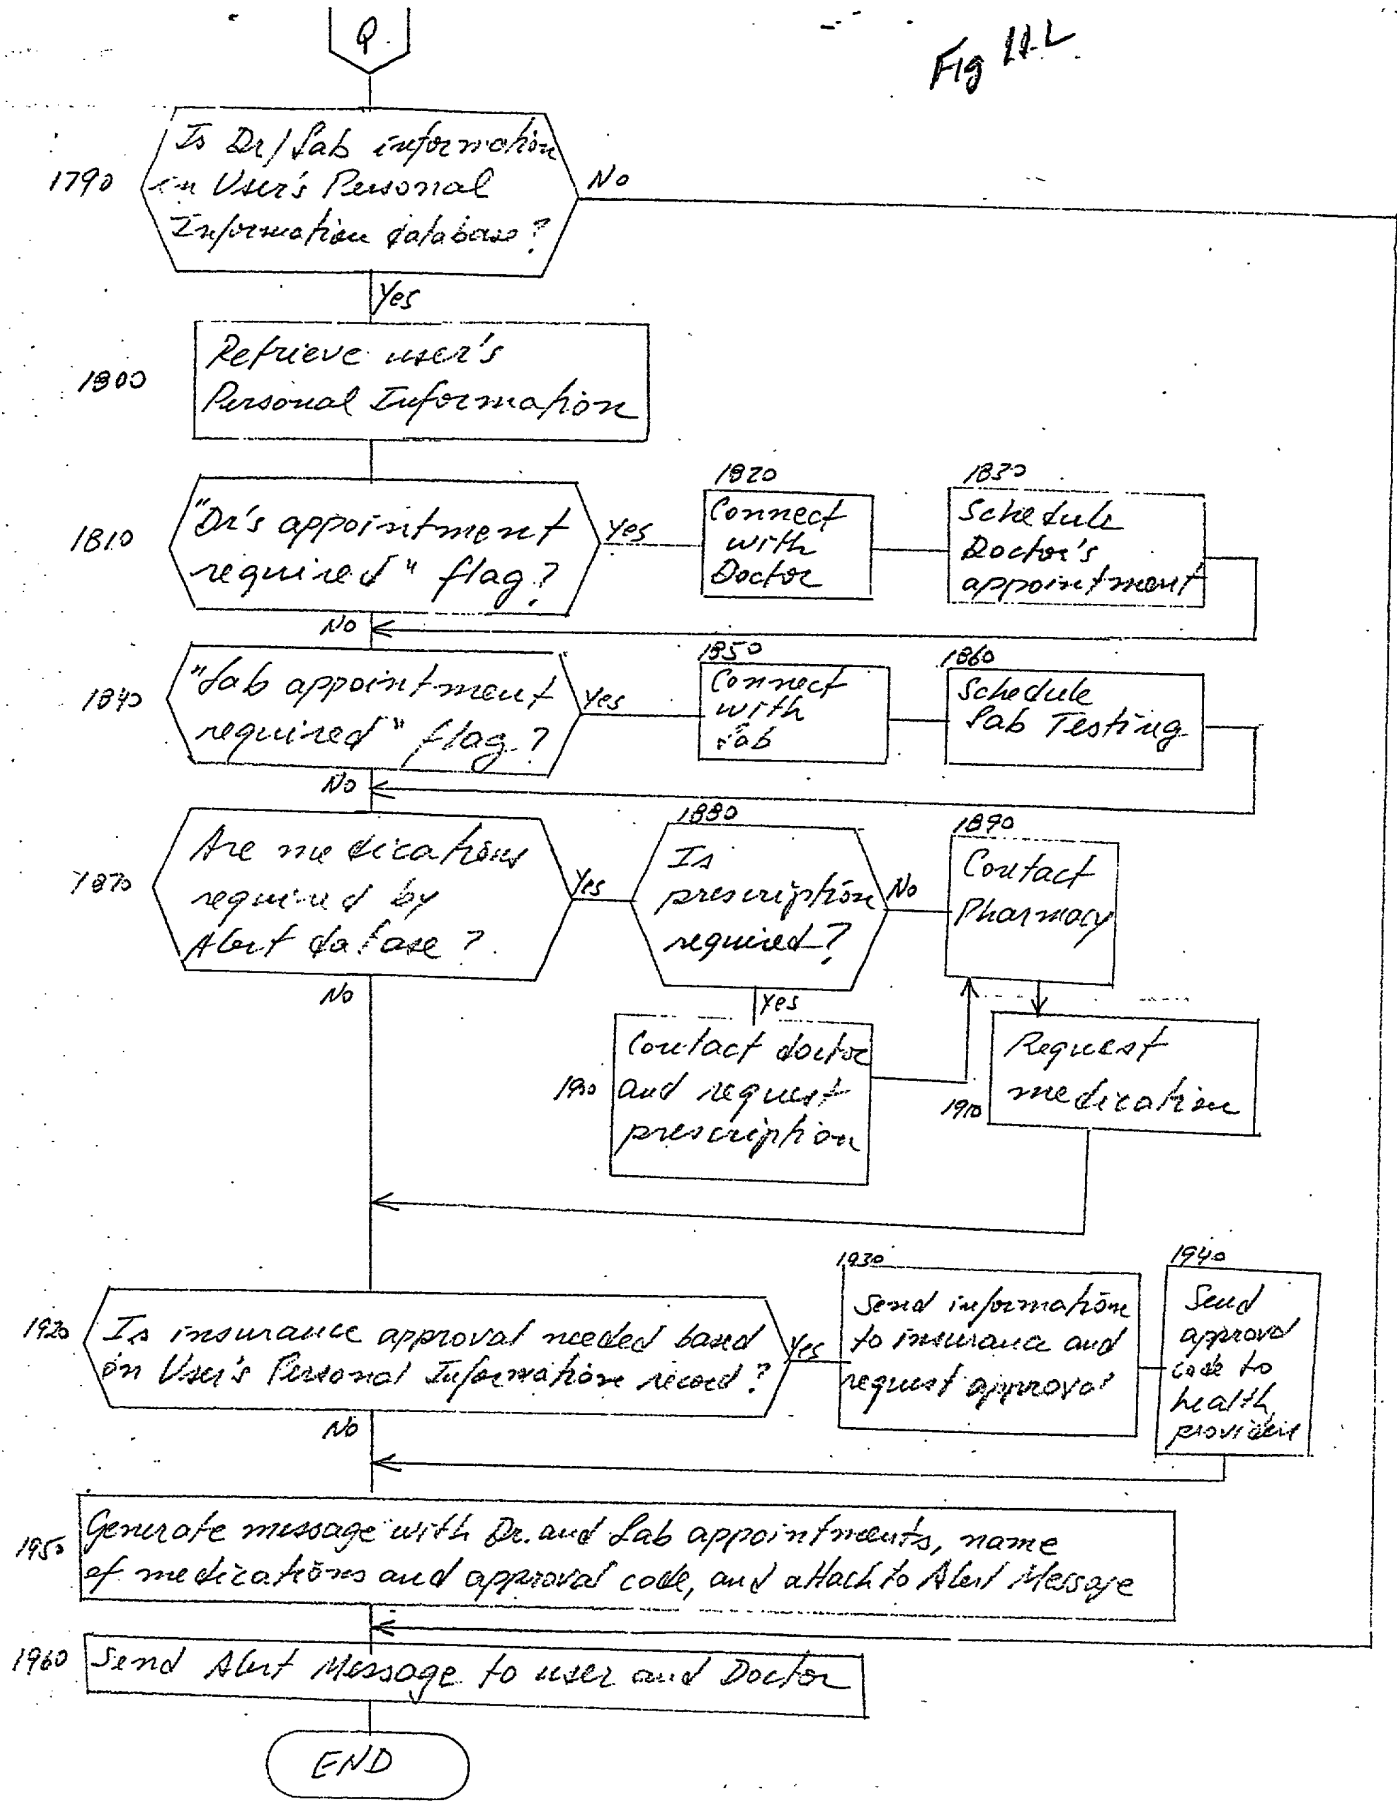 Q
Fig 11L
1790
Is Dr/Lab information
in User's Personal
Information database?
No
Yes
1800
Retrieve user's
Personal Information
1810
"Dr's appointment
required" flag?
Yes
1820
Connect
with
Doctor
1830
Schedule
Doctor's
appointment
No
1840
"Lab appointment
required" flag?
Yes
1850
Connect
with
Lab
1860
Schedule
Lab Testing
No
1870
Are medications
required by
Alert database?
Yes
1880
Is
prescription
required?
No
1890
Contact
Pharmacy
No
Yes
1900
Contact doctor
and request
prescription
1910
Request
medication
1920
Is insurance approval needed based
on User's Personal Information record?
Yes
1930
Send information
to insurance and
request approval
1940
Send
approval
code to
health
provider
No
1950
Generate message with Dr. and Lab appointments, name
of medications and approval code, and attach to Alert Message
1960
Send Alert Message to user and Doctor
END